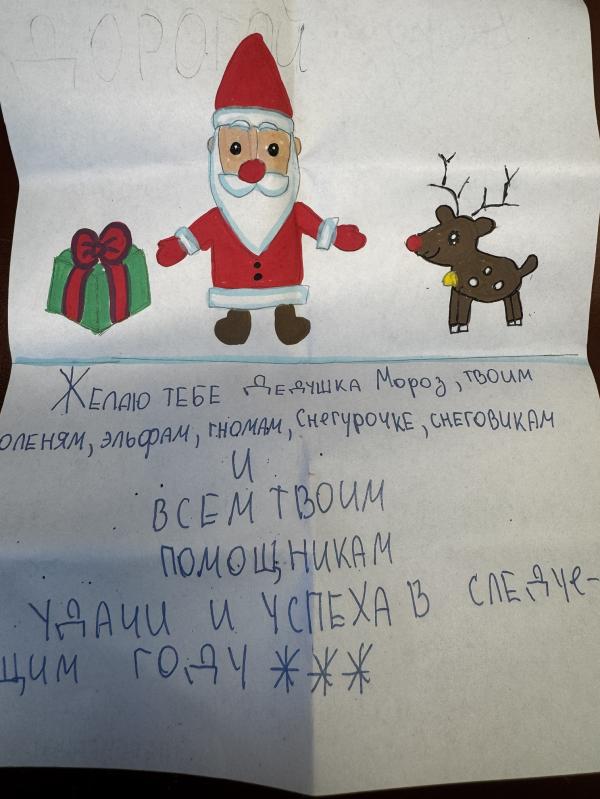 ДОРОГОЙ
ЖЕЛАЮ ТЕБЕ ДЕДУШКА МОРОЗ, ТВОИМ
ОЛЕНЯМ, ЭЛЬФАМ, ГНОМАМ, СНЕГУРОЧКЕ, СНЕГОВИКАМ
И
ВСЕМ ТВОИМ
ПОМОЩНИКАМ
УДАЧИ И УСПЕХА В СЛЕДУЕ-
ЩИМ ГОДУ ***